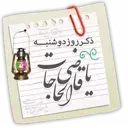 ذکر روز دوشنبه
یا قاضی الحاجات